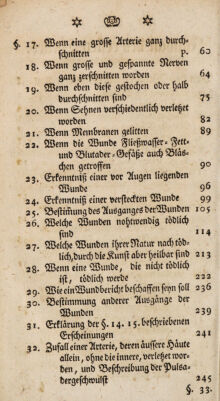 §. 17. Wenn eine grosse Arterie ganz durch-
schnitten p. 60
18. Wenn grosse und gespannte Nerven
ganz zerschnitten worden 64
19. Wenn eben diese gestochen oder halb
durchschnitten sind 75
20. Wenn Sehnen verschiedentlich verletzet
worden 82
21. Wenn Membranen gelitten 89
22. Wenn die Wunde Fließwasser- Fett-
und Blutader-Gefäße auch Bläs-
chen getroffen 90
23. Erkenntniß einer vor Augen liegenden
Wunde 96
24. Erkenntniß einer versteckten Wunde 99
25. Bestim̃ung des Ausganges der Wunden 105
26. Welche Wunden nohtwendig tödlich
sind 114
27. Welche Wunden ihrer Natur nach töd-
lich, durch die Kunst aber heilbar sind 213
28. Wenn eine Wunde, die nicht tödlich
ist, tödlich werde 222
29. Wie ein Wundbericht beschaffen seyn soll 236
30. Bestimmung anderer Ausgänge der
Wunden 239
31. Erklärung der §. 14. 15. beschriebenen
Erscheinungen 241
32. Zufall einer Arterie, deren äussere Häute
allein, ohne die innere, verletzet wor-
den, und Beschreibung der Pulsa-
dergeschwulst 245
§. 33.